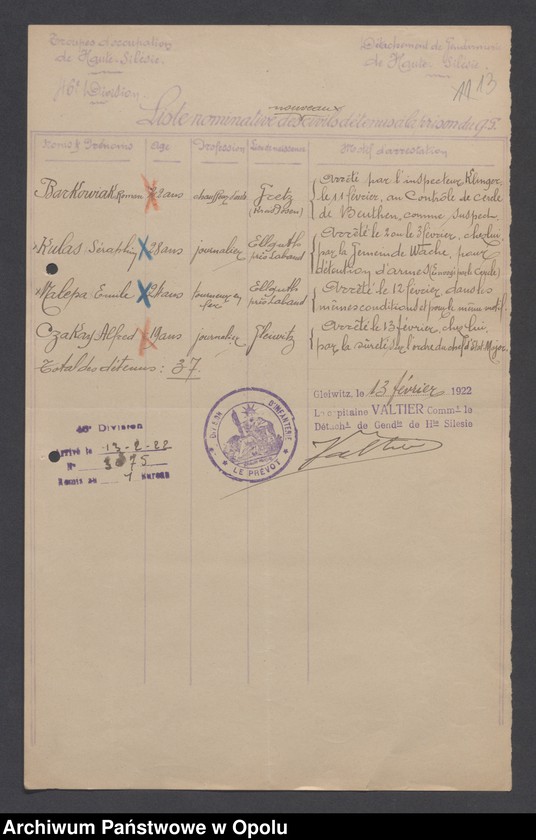 Troupes d'occupation
de Haute-Silésie.
46e Division.
Détachement de Gendarmerie
de Haute Silésie.
1113
Liste nominative des nouveaux civils détenus à la prison du Q.G.
Noms & Prénoms Age Profession Motif d'arrestation
Barkowiak Roman 22 ans chauffeur Gretz
Arrêté par l'inspecteur Klinger
le 11 février, au Contrôle de Cercle
de Beuthen, comme suspect.
Kulas Séraphin 28 ans journalier Ellguth
près Laband
Arrêté le 2 ou le 3 février, chez lui
par la Gemeinde Wache, pour
détention d'armes (Envoyé par le Cercle)
Malepa Emile 21 ans tourneur en
fer Ellguth
près Laband
Arrêté le 12 février, dans les
mêmes conditions et pour le même motif.
Czakay Alfred 19 ans journalier Gleiwitz
Arrêté le 13 février, chez lui,
par la sûreté sur l'ordre du chef d'Etat-Major.
Total des détenus : 37.
Gleiwitz, le 13 février 1922
Le capitaine VALTIER Commt le
Détacht de Gendie de Hte Silésie
Valtier
DIVISION D'INFANTERIE
LE PRÉVOT
46e Division
Arrivé le 13-2-22
N° 3075
Remis au 1 Bureau
Archiwum Państwowe w Opolu